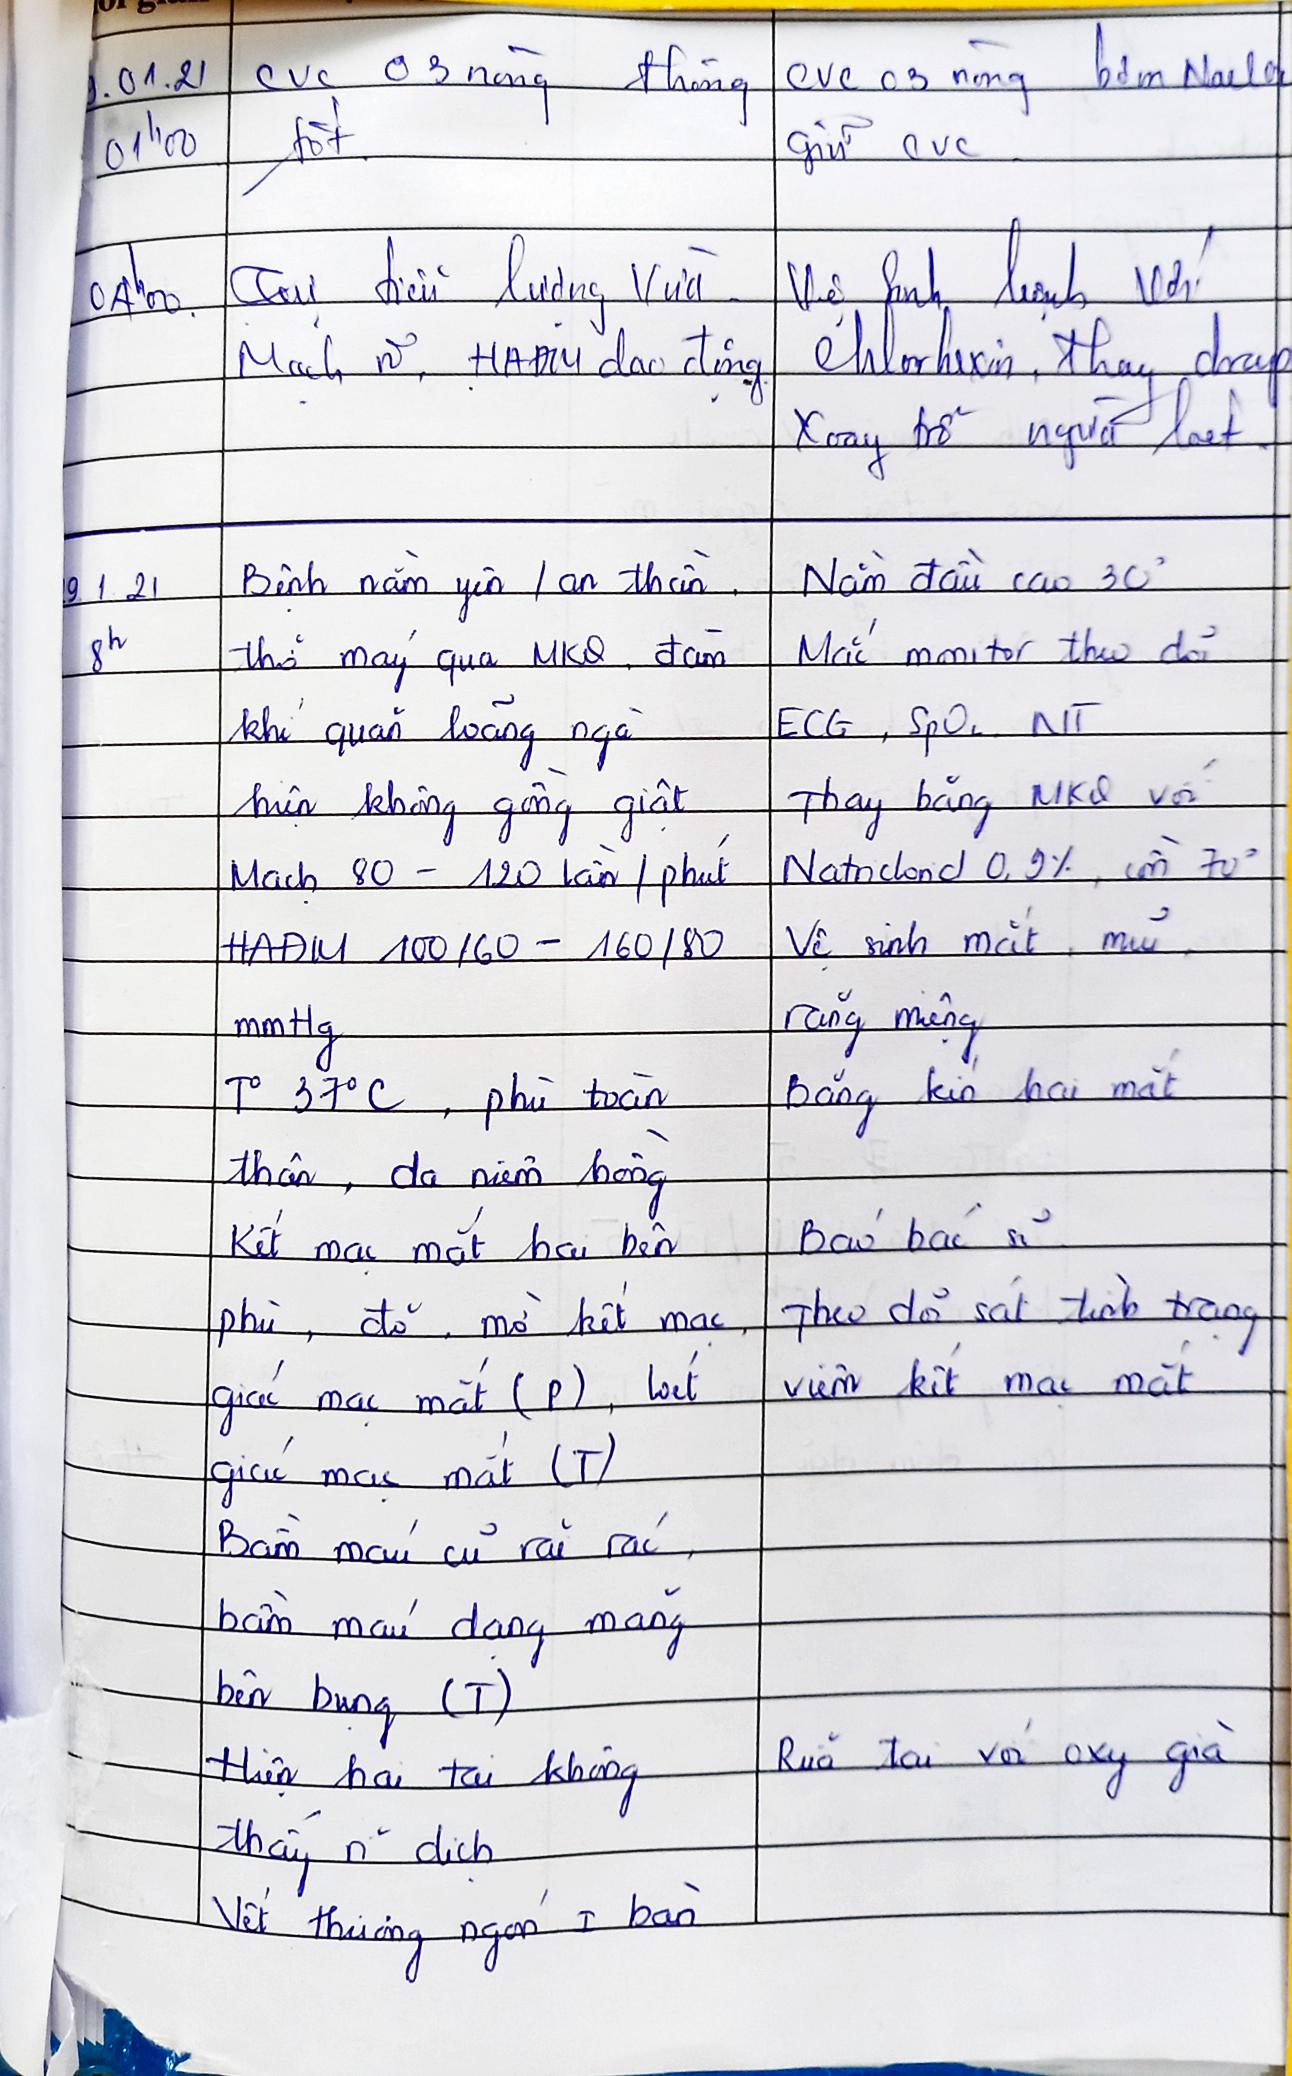 .01.21 CVC 03 nòng thông CVC 03 nòng bơm NaCl
01h00 tốt. giữ CVC
04h00. tiểu lượng vừa. Vệ sinh bệnh với
Mạch rõ, HAĐM dao động. Chlorhexin, thay drap
Xoay trở ngừa loét.
9.1.21 Bệnh nằm yên / an thần. Nằm đầu cao 30°
8h thở máy qua MKQ, đàm Mắc monitor theo dõi
khí quản loãng ngà ECG, SpO2 NT
hiện không gồng giật Thay băng MKQ với
Mạch 80 - 120 lần / phút Natriclorid 0,9%, cồn 70°
HAĐM 100/60 - 160/80 Vệ sinh mắt, mũi,
mmHg răng miệng
T° 37°C, phù toàn Băng kín hai mắt
thân, da niêm hồng
Kết mạc mắt hai bên Báo bác sĩ
phù, đỏ, mờ kết mạc, Theo dõi sát tình trạng
giác mạc mắt (P), loét viêm kết mạc mắt
giác mạc mắt (T)
Bầm máu cũ rải rác,
bầm máu dạng mảng
bên bụng (T)
Hiện hai tai không Rửa tai với oxy già
thấy rỉ dịch
Vết thương ngón I bàn